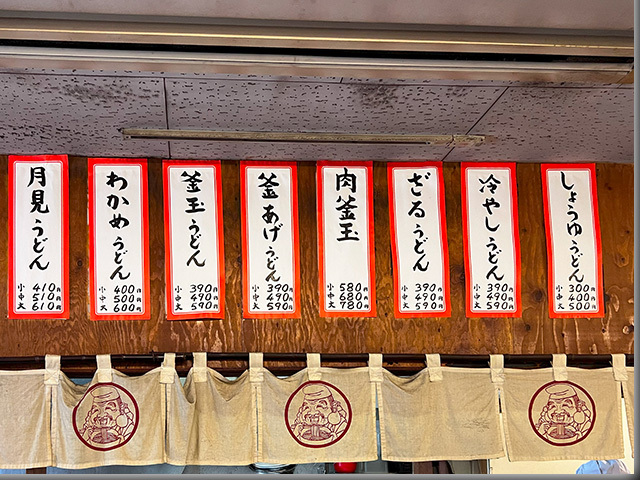 しょうゆうどん
小 300円
中 400円
大 500円
冷やしうどん
小 390円
中 490円
大 590円
ざるうどん
小 390円
中 490円
大 590円
肉釜玉
小 580円
中 680円
大 780円
釜あげうどん
小 390円
中 490円
大 590円
釜玉うどん
小 390円
中 490円
大 590円
わかめうどん
小 400円
中 500円
大 600円
月見うどん
小 410円
中 510円
大 610円